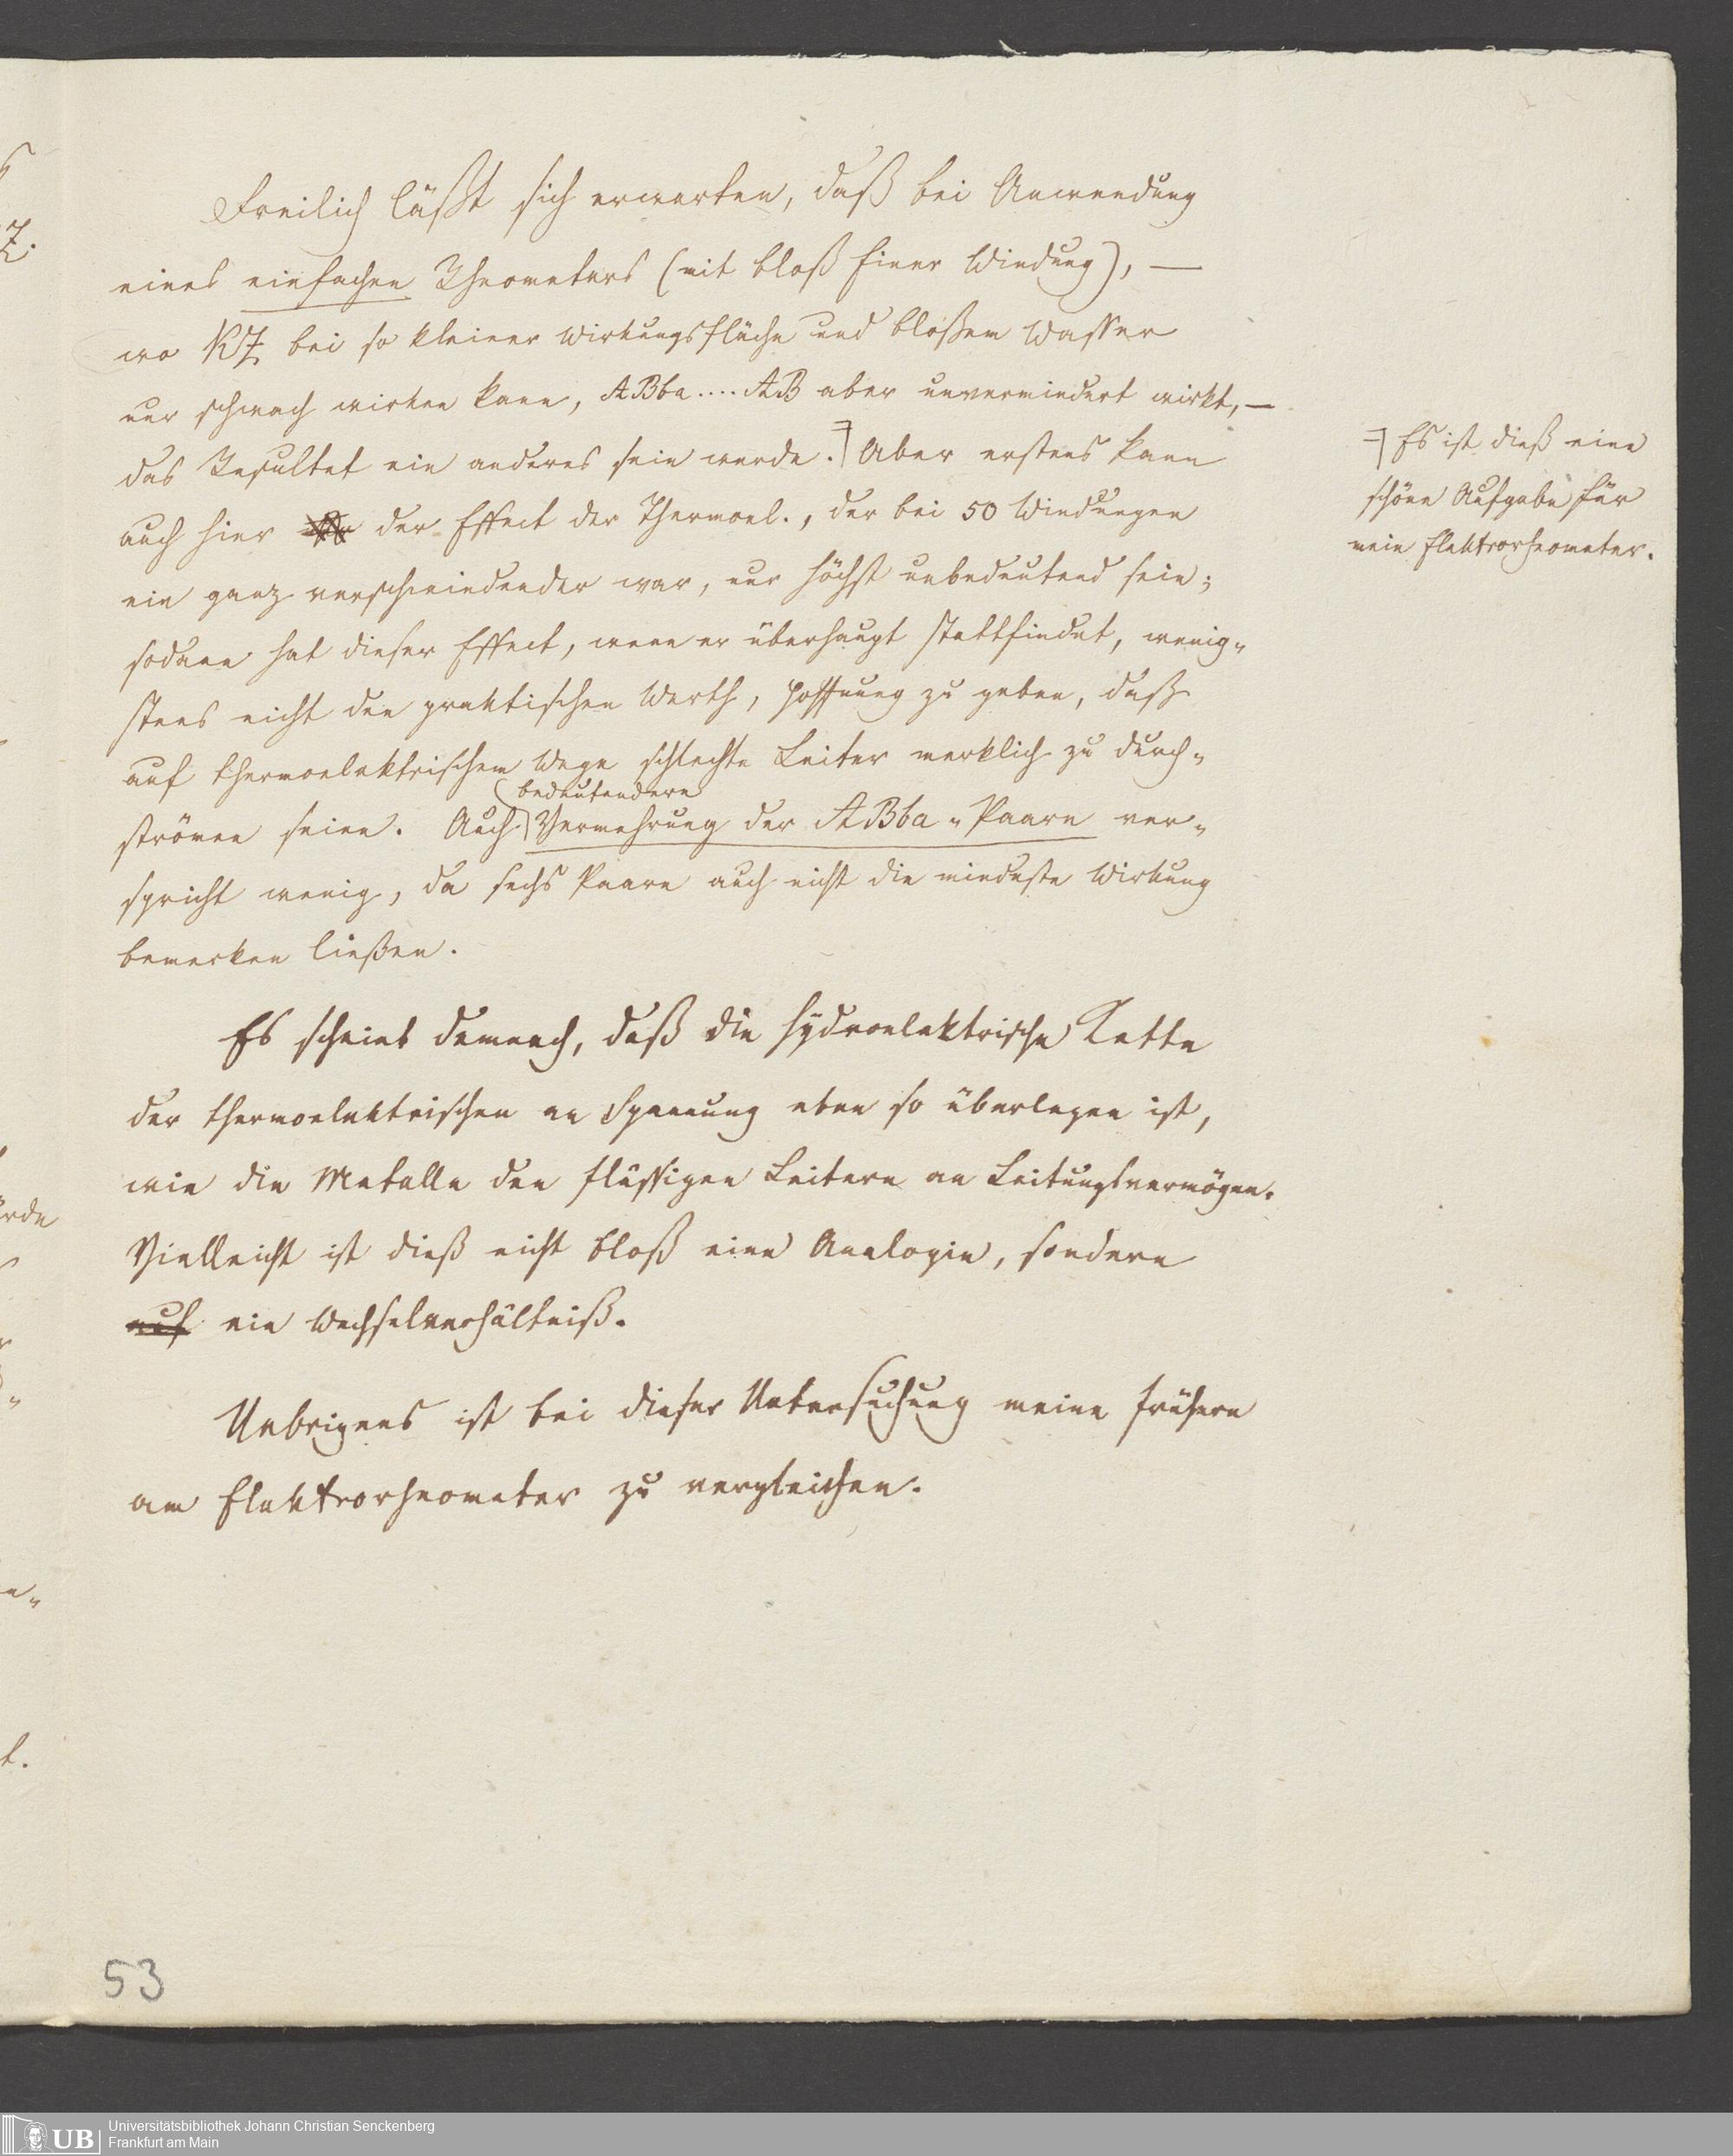 Freilich läßt sich erwarten, daß bei Anwendung
eines einfachen Rheometers (mit bloß Einer Windung), —
wo KZ bei so kleiner Wirkungsfläche und bloßem Wasser
nur schwach wirken kann, ABba .... AB aber unvermindert wirkt, —
das Resultat ein anderes sein werde. Aber erstens kann
auch hier der Effect der Thermoel., der bei 50 Windungen
ein ganz verschwindender war, nur höchst unbedeutend sein;
sodann hat dieser Effect, wenn er überhaupt stattfindet, wenig-
stens nicht den praktischen Werth, Hoffnung zu geben, daß
auf thermoelektrischem Wege schlechte Leiter merklich zu durch-
strömen seien. Auch bedeutendere Vermehrung der ABba-Paare ver-
spricht wenig, da sechs Paare auch nicht die mindeste Wirkung
bemerken ließen.
Es ist dieß eine
schöne Aufgabe für
mein Elektrorheometer.
Es scheint demnach, daß die hydroelektrische Kette
der thermoelektrischen an Spannung eben so überlegen ist,
wie die Metalle den flüssigen Leitern an Leitungsvermögen.
Vielleicht ist dieß nicht bloß eine Analogie, sondern
auf ein Wechselverhältniß.
Uebrigens ist bei dieser Untersuchung meine frühere
am Elektrorheometer zu vergleichen.
53
Universitätsbibliothek Johann Christian Senckenberg
Frankfurt am Main
UB